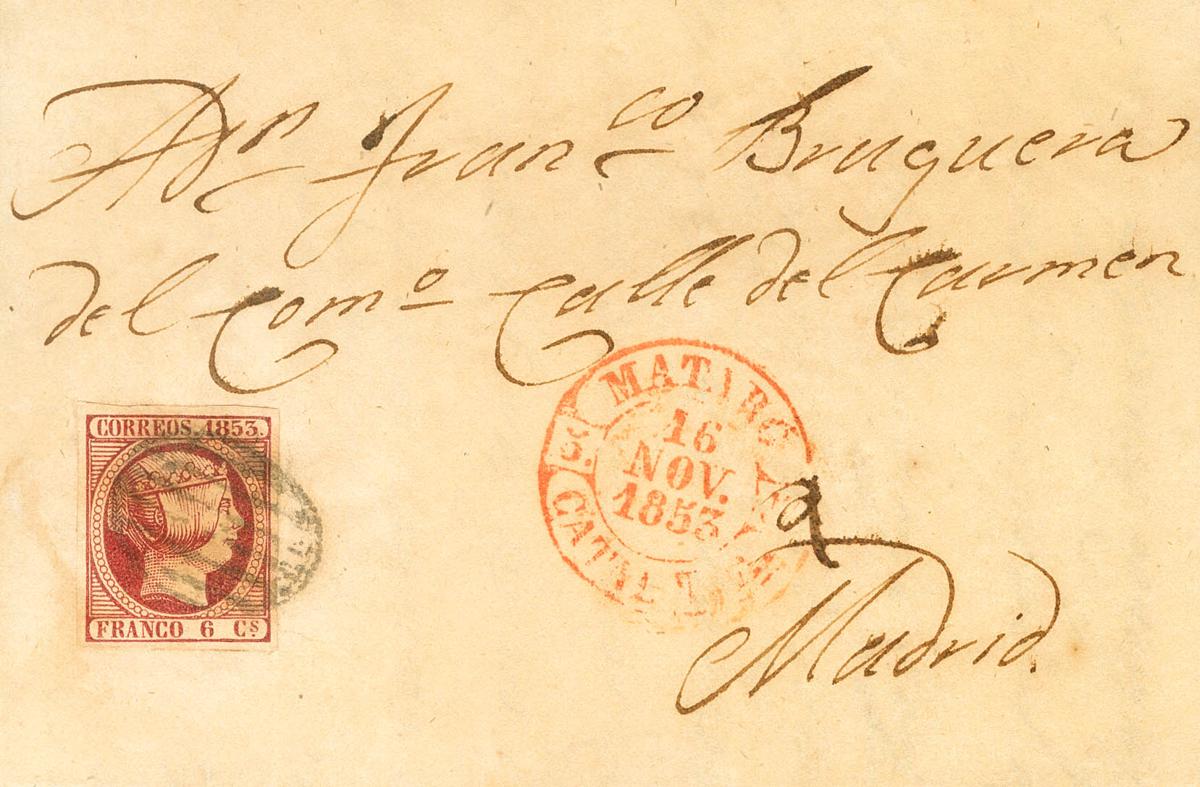 A Dn Franco Bruguera
del Como Calle del Carmen
CORREOS. 1853.
FRANCO 6 Cs
MATARO
16
NOV.
1853
a
Madrid.